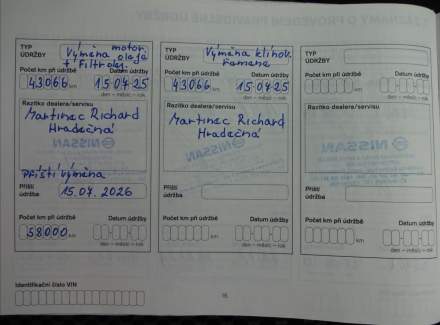 TYP ÚDRŽBY
Výměna motor. oleje
+ Filtr olej.
Počet km při údržbě
Datum údržby
43066 km
15 04 25
den – měsíc – rok
Razítko dealera/servisu
Martinec Richard
Hradečná
Příští výměna
Příští údržba
15.04. 2026
Počet km při údržbě
Datum údržby
58000 km
den – měsíc – rok
Identifikační číslo VIN
TYP ÚDRŽBY
Výměna klínov.
řemene
Počet km při údržbě
Datum údržby
43066 km
15 04 25
den – měsíc – rok
Razítko dealera/servisu
Martinec Richard
Hradečná
Příští údržba
Počet km při údržbě
Datum údržby
km
den – měsíc – rok
TYP ÚDRŽBY
Počet km při údržbě
Datum údržby
km
den – měsíc – rok
Razítko dealera/servisu
NISSAN
Příští údržba
Počet km při údržbě
Datum údržby
km
den – měsíc – rok